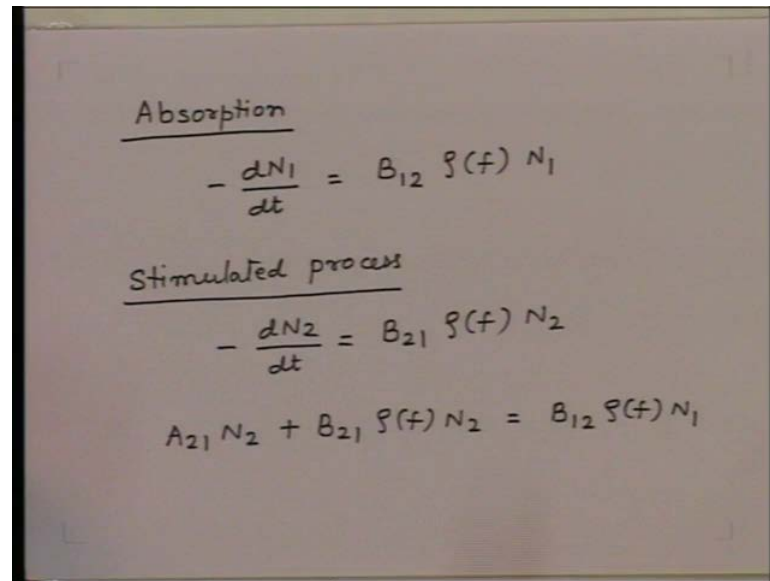 Absorption
- dN1/dt = B12 ρ(f) N1
Stimulated process
- dN2/dt = B21 ρ(f) N2
A21 N2 + B21 ρ(f) N2 = B12 ρ(f) N1